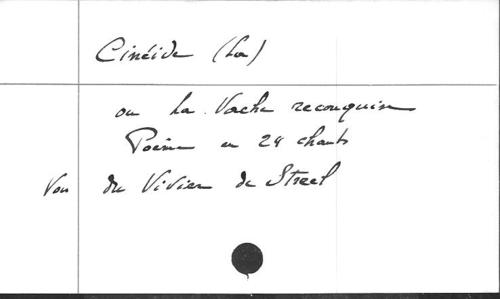 Cinéide (La)
ou La Vache reconquise
Poème en 24 chants
Von du Vivier de Streel